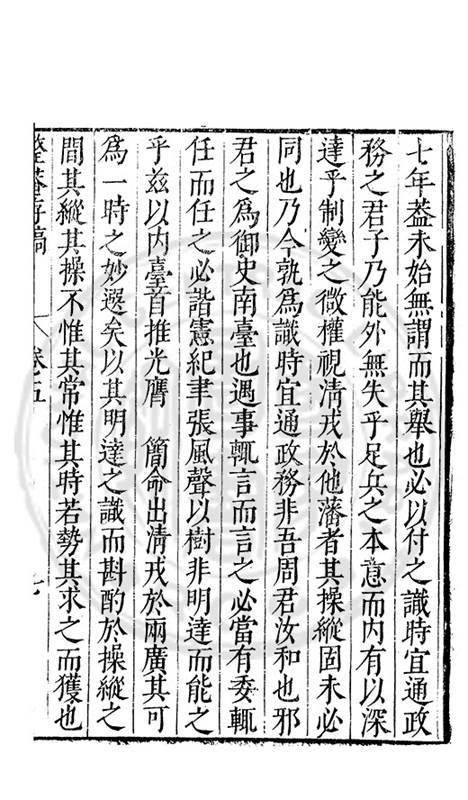 七年蓋未始無謂而其舉也必以付之識時宜通政
務之君子乃能外無失乎足兵之本意而內有以深
達乎制變之微權視清戎於他藩者其操縱固未必
同也乃今孰為識時宜通政務非吾周君汝和也邪
君之為御史南臺也遇事輒言而言之必當有委輒
任而任之必諧憲紀聿張風聲以樹非明達而能之
乎茲以內臺首推光膺　簡命出清戎於兩廣其可
為一時之妙選矣以其明達之識而斟酌於操縱之
間其縱其操不惟其常惟其時若勢其求之而獲也
卷五
七